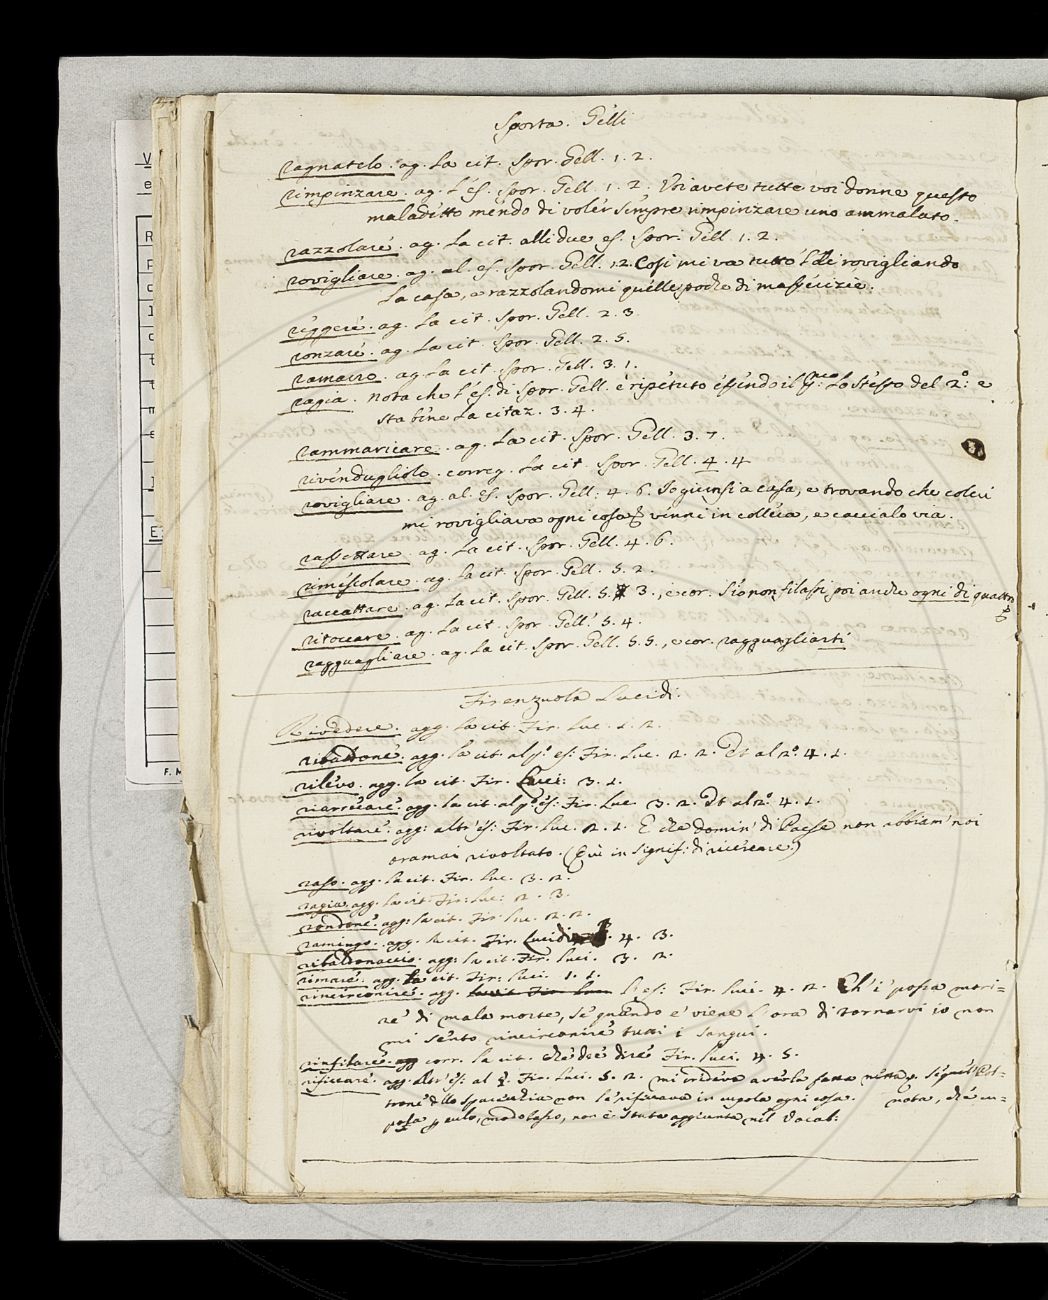 Sporta. Gelli
ragnatelo. ag. la cit. Spor. Gell. 1. 2.
rimpinzare. ag. l'es. Spor. Gell. 1. 2. Voi avete tutte voi donne questo
maladetto mendo di voler sempre rimpinzare uno ammalato.
razzolare. ag. la cit. alli due es. Spor. Gell. 1. 2.
rovigliare. ag. al. es. Spor. Gell. 1. 2. Così mi va tutto l' dì rovigliando
la casa, e razzolandomi quelle poche di masserizie.
reggere. ag. la cit. Spor. Gell. 2. 3.
ronzare. ag. la cit. Spor. Gell. 2. 5.
ramarro. ag. la cit. Spor. Gell. 3. 1.
ragia. nota che l'es. di Spor. Gell. è ripetuto essendo il lo stesso del 2.º e
sta bene la citaz. 3. 4.
rammaricare. ag. la cit. Spor. Gell. 3. 7.
rivendugliolo. correg. la cit. Spor. Gell. 4. 4
rovigliare. ag. al. es. Spor. Gell. 4. 6. Io giunsi a casa, e trovando che colei
mi rovigliava ogni cosa, venni in collera, e caccialo via.
rassettare. ag. la cit. Spor. Gell. 4. 6.
rimescolare. ag. la cit. Spor. Gell. 5. 2.
raccattare. ag. la cit. Spor. Gell. 5. 3., e cor. Se non filassi poi anche ogni dì
ritoccare. ag. la cit. Spor. Gell. 5. 4.
ragguagliare. ag. la cit. Spor. Gell. 5. 5., e cor. ragguagliarti
Firenzuola Lucidi.
Rivedere. agg. la cit. Fir. Luc. 1. 2.
ribaldone. agg. la cit. al pº. es. Fir. Luc. 2. 2. Et al 2º. 4. 1.
rilevo. agg. la cit. Fir. Luci. 3. 1.
riarrecare. agg. la cit. al pº. es. Fir. Luc. 3. 2. Et al 2º. 4. 1.
rivoltare. agg. altr' es. Fir. Luc. 2. 1. E che domin' di Paese non abbiam' noi
oramai rivoltato. (Qui in signif. di ricercare.)
raso. agg. la cit. Fir. Luc. 3. 2.
ragia. agg. la cit. Fir. Luc. 2. 3.
rondone. agg. la cit. Fir. Luc. 2. 2.
ramingo. agg. la cit. Fir. Lucidi 4. 3.
ribaldonaccio. agg. la cit. Fir. Luci. 3. 2.
rimare. agg. la cit. Fir. Luci. 1. 1.
rincirconire. agg. la cit. Fir. Luc. l'es. Fir. Luci. 4. 2. Ch' i' possa mori=
re' di mala morte, se quando e' viene l'ora di tornarvi io non
mi sento rincirconire tutti i sangui.
rinfilare. corr. la cit. che dee dire Fir. Luci. 4. 5.
rificcare. agg. altr' es. al §. Fir. Luci. 5. 2. mi credeva averla fatta netta
non se rificcava in cupola ogni cosa. nota, che cu=
pola p culo, modo basso, non è stata aggiunta nel Vocab.